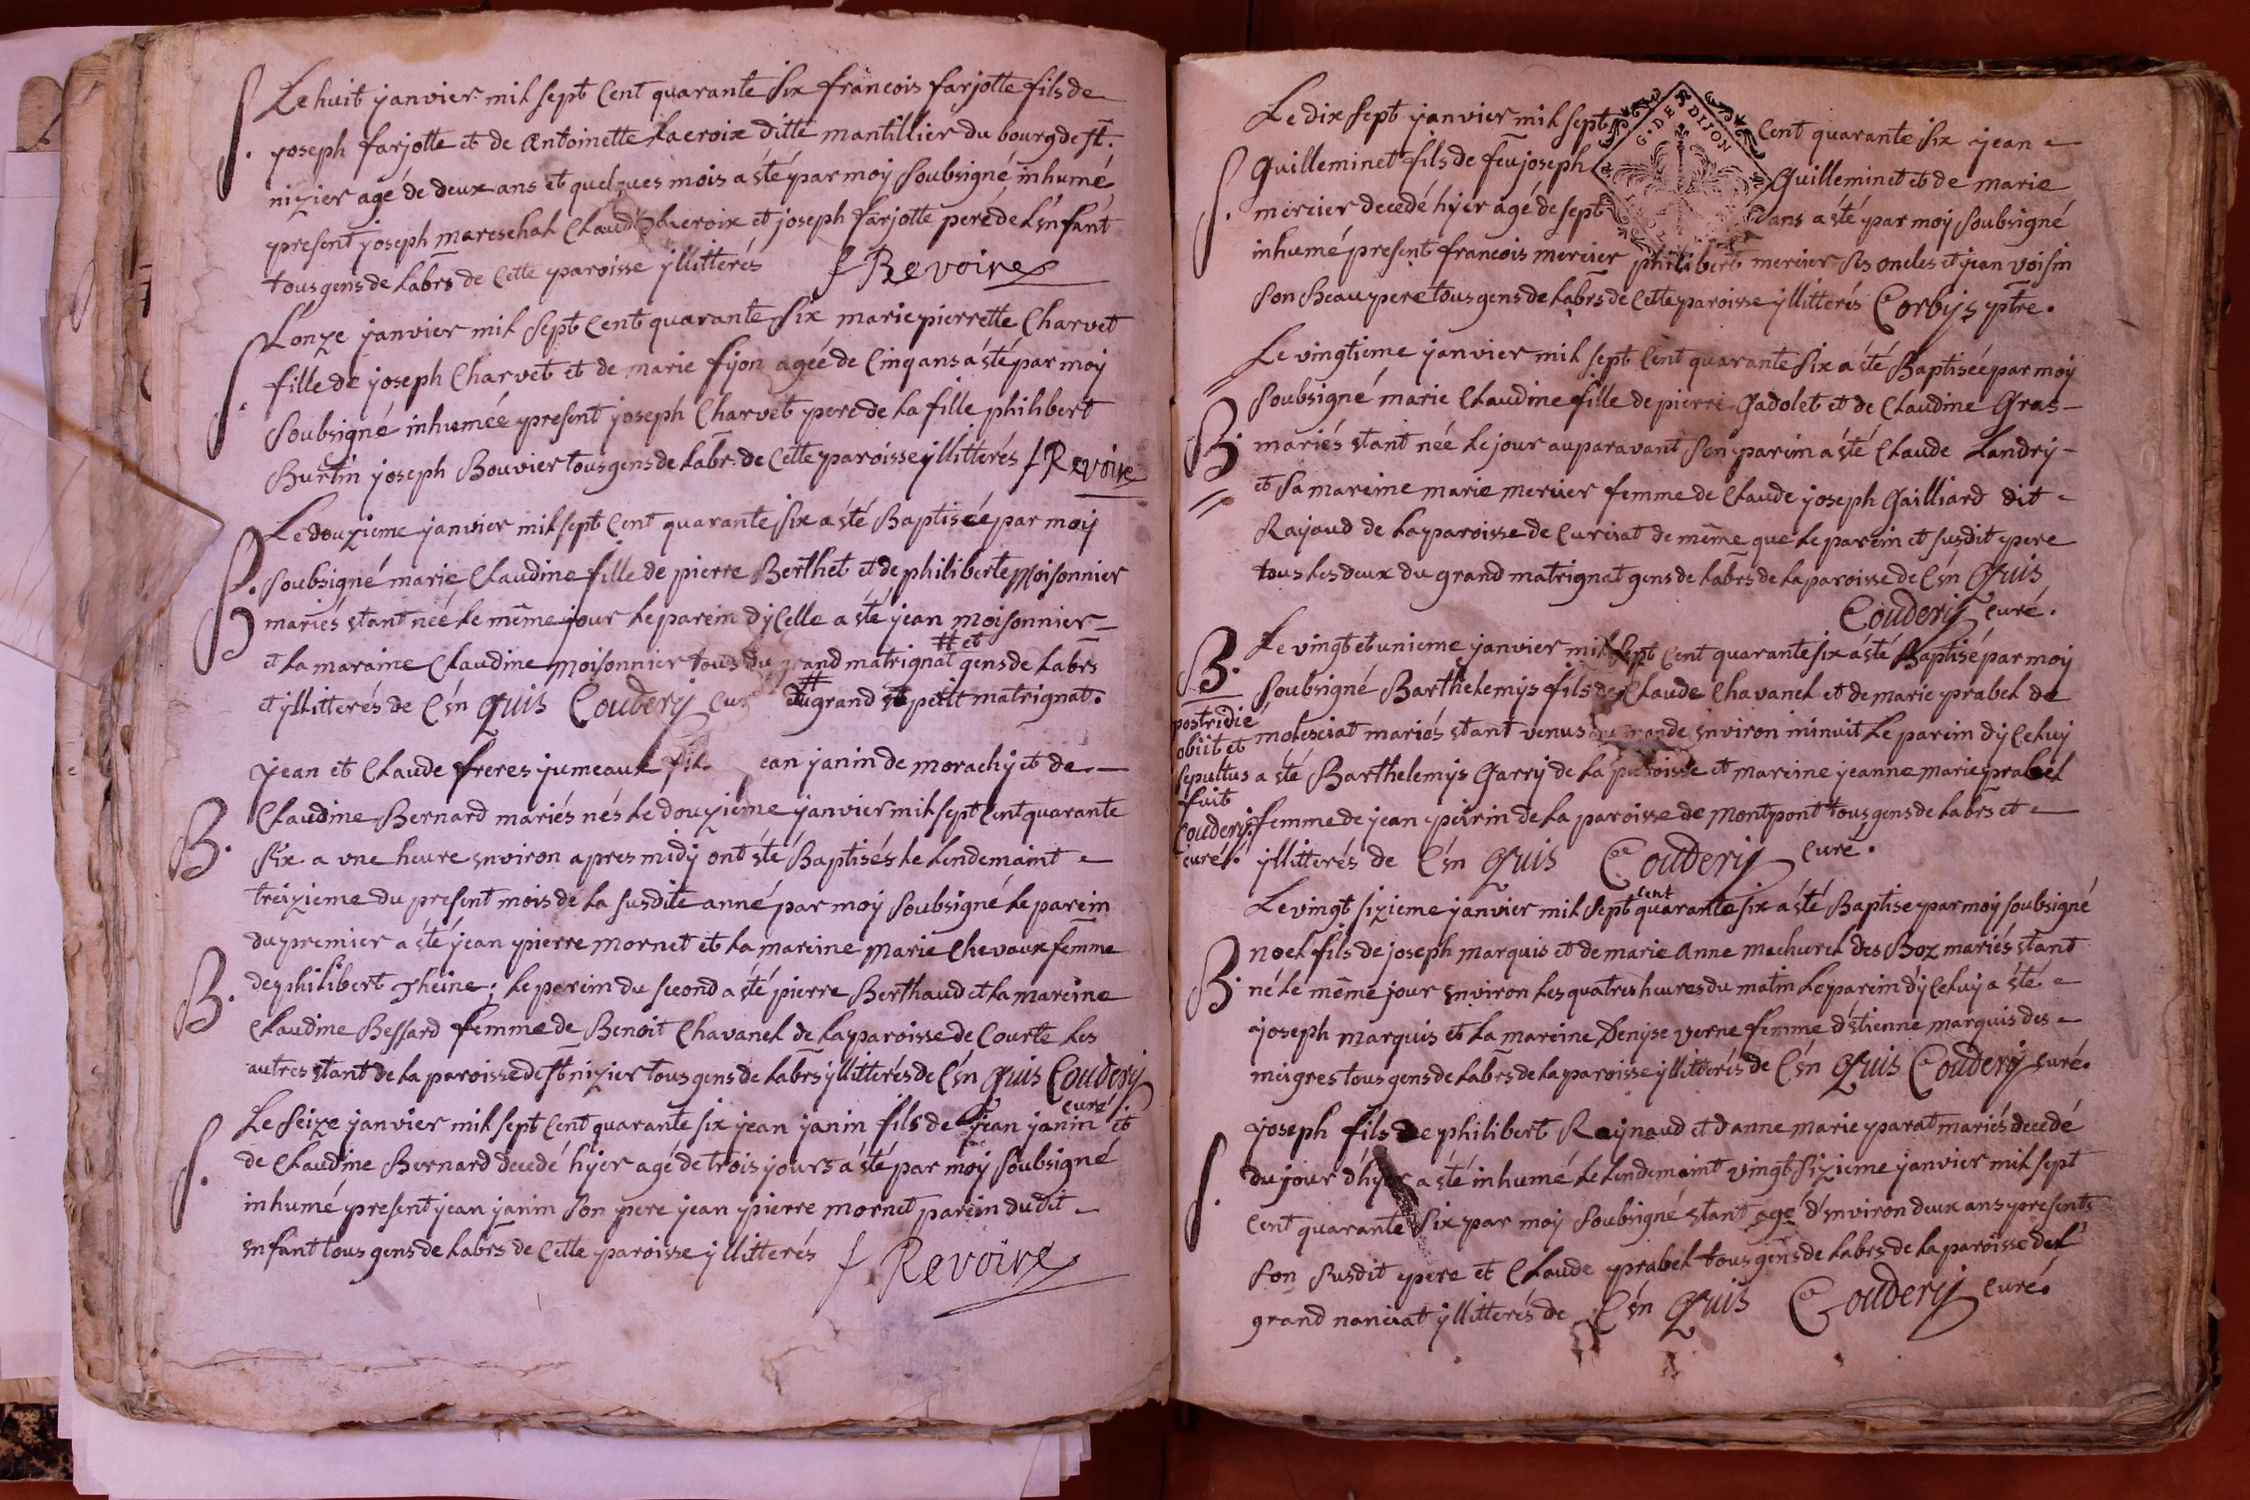 S. Le huit janvier mil sept cent quarante six francois farjotte fils de
joseph farjotte et de Antoinette Lacroix ditte mantillier du bourg de st.
nizier agé de deux ans et quelques mois a śté par moy soubsigné inhumé
present joseph mareschal Claude Lacroix et joseph farjotte pere de L'enfant
tous gens de Labrs de Cette paroisse yllitterés f Revoire
S. L'onze janvier mil sept Cent quarante six marie pierrette Charvet
fille de joseph Charvet et de marie fyon agée de Cinq ans a śté par moy
soubsigné inhumée present joseph Charvet pere de La fille philibert
Burtin joseph Bouvier tous gens de Labr. de Cette paroisse yllitterés f Revoire
B. Le douzieme janvier mil sept Cent quarante six a śté Baptisée par moy
soubsigné marie Claudine fille de pierre Berthet et de philiberte Moisonnier
mariés etant née Le même jour Le parein d'ycelle a śté jean moisonnier
et La maraine Claudine moisonnier tous du grand matrignat # et gens de Labrs
et yllitterés de C'en quis Coudery Cur # du grand et petit matrignat.
jean et Claude freres jumeaux ean janin de morachy et de
B. Claudine Bernard mariés nés Le douzieme janvier mil sept Cent quarante
six a une heure environ apres midy ont śté Baptisés Le Lendemaint
treizieme du present mois de La susdite anné par moy soubsigné Le parein
du premier a śté jean pierre mornet et La mareine Marie Chevaux femme
B. de philibert Theine; Le perein du second a śté pierre Berthaud et La mareine
Claudine Bessard femme de Benoit Chavanel de La paroisse de Courte Les
autres etant de La paroisse de st nizier tous gens de Labrs yllitterés de C'en quis Coudery
curé
S. Le seize janvier mil sept Cent quarante six jean janin fils de jean janin et
de Claudine Bernard decedé hyer agé de trois jours a śté par moy soubsigné
inhumé present jean janin son pere jean pierre mornet parein dudit
enfant tous gens de Labrs de Cette paroisse yllitterés f Revoire
G. DE DIJON
S. Le dix sept janvier mil sept Cent quarante six jean
Guilleminet fils de feu joseph Guilleminet et de marie
mercier decedé hyer agé de sept ans a śté par moy soubsigné
inhumé present francois mercier philibert mercier ses oncles et jean voisin
son beau pere tous gens de Labrs de Cette paroisse yllitterés Corbys ptre.
B. Le vingtieme janvier mil sept Cent quarante six a śté Baptisée par moy
soubsigné marie Claudine fille de pierre Gadolet et de Claudine Gras
mariés etant née Le jour auparavant son parein a śté Claude Landry
et sa mareine marie mercier femme de Claude joseph Gailliard dit
Rayaud de La paroisse de Curciat de même que Le parein et susdit pere
tous Les deux du grand matrignat gens de Labrs de La paroisse de C'en quis
Coudery curé.
B. Le vingt et unieme janvier mil sept Cent quarante six a śté Baptisé par moy
soubsigné Barthelemys fils de Claude Chavanel et de marie prabel de
molesciat mariés etant venus au monde environ minuit Le parein d'yCeluy
a śté Barthelemys Garry de La paroisse et mareine jeanne marie prabel
femme de jean peirin de La paroisse de Montpont tous gens de Labrs et
yllitterés de C'en quis Coudery curé.
postridie
obiit et
sepultus
fuit
Coudery
curé.
B. Le vingt sizieme janvier mil sept cent quarante six a śté Baptise par moy soubsigné
noel fils de joseph marquis et de marie Anne machurel des Boz mariés etant
né Le même jour environ Les quatres heures du matin Le parein d'yCeluy a śté
joseph marquis et La mareine Denyse verne femme d'etienne marquis des
meigres tous gens de Labrs de La paroisse yllitterés de C'en quis Coudery curé.
S. joseph fils de philibert Raynaud et d'anne marie parat mariés decedé
du jour d'hyer a śté inhumé Le Lendemaint vingt sizieme janvier mil sept
cent quarante six par moy soubsigné etant agé d'environ deux ans presents
son susdit pere et Claude prabel tous gens de Labrs de La paroisse del
grand nanciat yllitterés de C'en quis Coudery curé.